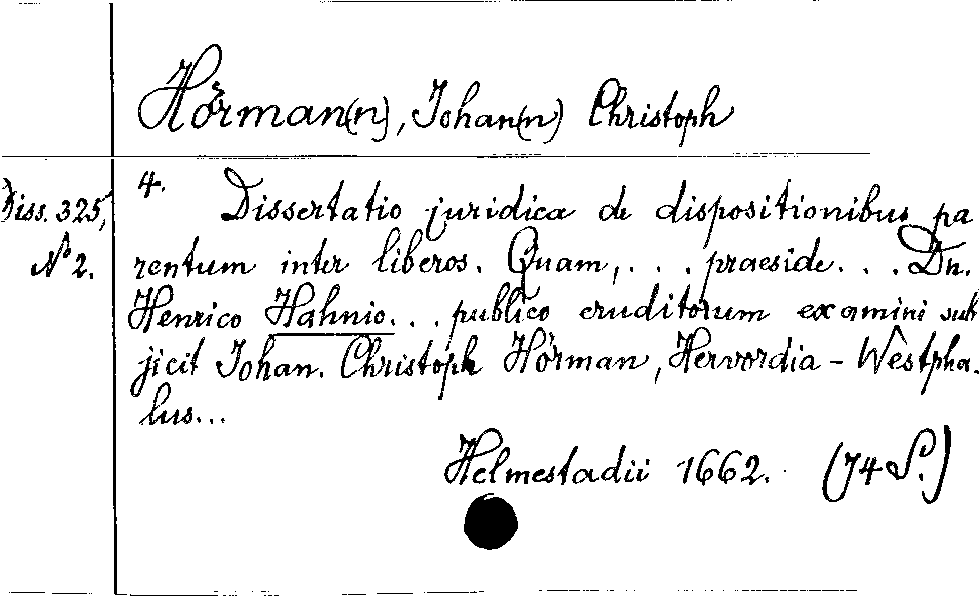 Hörman(n), Johan(n) Christoph
Diss. 325,
No 2.
4. Dissertatio juridica de dispositionibus pa
rentum inter liberos. Quam, . . . praeside . . . Dn.
Henrico Hahnio. . . publico eruditorum examini sub
jicit Johan. Christoph Hörman, Hervordia - Westpha.
lus...
Helmestadii 1662. (74 S.)